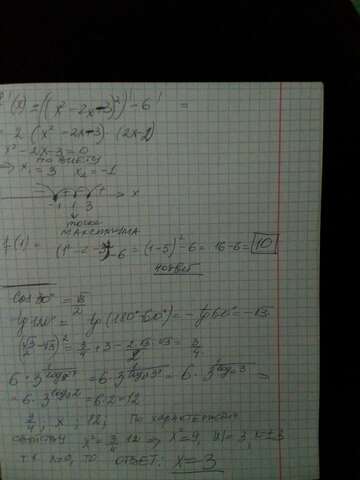 f'(x) = ((x² - 2x - 3)²)' - 6' =
= 2 (x² - 2x - 3) · (2x - 2)
x² - 2x - 3 = 0
по Виету
=> x₁ = 3 x₂ = -1
- + - + → x
-1 1 3
точка
МАКСИМУМА
f(1) = (1² - 2 - 3)² - 6 = (1 - 5)² - 6 = 16 - 6 = 10
ответ
cos 30° = √3/2
tg 120° = tg (180° - 60°) = -tg 60° = -√3
(√3/2 - √3)² = 3/4 + 3 - 2·√3/2·√3 = 3/4
= 6 · 3^(log₃ 2) = 6·2 = 12
3/4; x; 12; По характерист.
свойству x² = 3/4 · 12 => x² = 9, |x| = 3, x = ±3
т.к. x > 0, то ОТВЕТ: x = 3